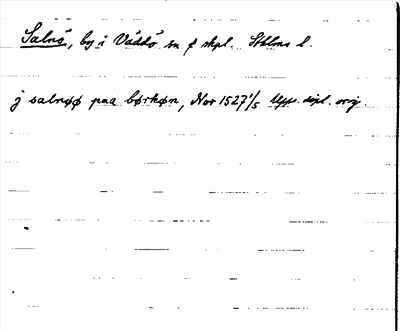 Salnö, by i Väddö sn o skpl. Sthlms l.
j salnøø paa børkøn, Nor 1527 1/5 Upps. dipl. orig.